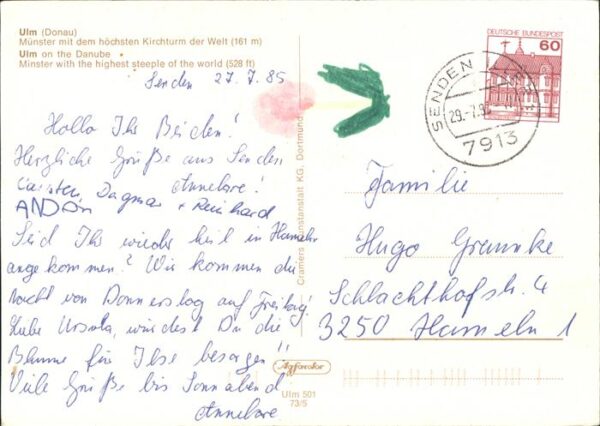 Ulm (Donau)
Münster mit dem höchsten Kirchturm der Welt (161 m)
Ulm on the Danube •
Minster with the highest steeple of the world (528 ft)
Senden 27.7.85
Hallo Ihr Beiden!
Herzliche Grüße aus Senden
Annelore!
Carsten, Dagmar + Reinhard
ANDON
Seid Ihr wieder heil in Hameln
angekommen? Wir kommen die
Nacht von Donnerstag auf Freitag!
Liebe Ursula, würdest Du die
Blume für Ilse besorgen!!
Viele Grüße bis Sonnabend
Annelore
Cramers Kunstanstalt KG, Dortmund
Agfacolor
Ulm 501
73/5
DEUTSCHE BUNDESPOST
60
SENDEN
29.-7.
7913
Familie
Hugo Graunke
Schlachthofstr. 4
3250 Hameln 1